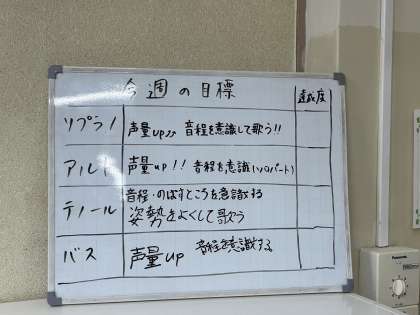 今週の目標 達成度
ソプラノ 声量up♪♪ 音程を意識して歌う!!
アルト 声量up!! 音程を意識(ソロパート)
テノール 音程・のばすところを意識する
姿勢をよくして歌う
バス 声量up 音程を意識する
Panasonic